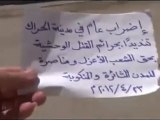 إضراب عام في مدينة الحراك
تنديداً بجرائم القتل الوحشية
بحق الشعب الأعزل ومناصرة
للمدن الثائرة والمنكوبة
٢٠١٢/٤/٢٣